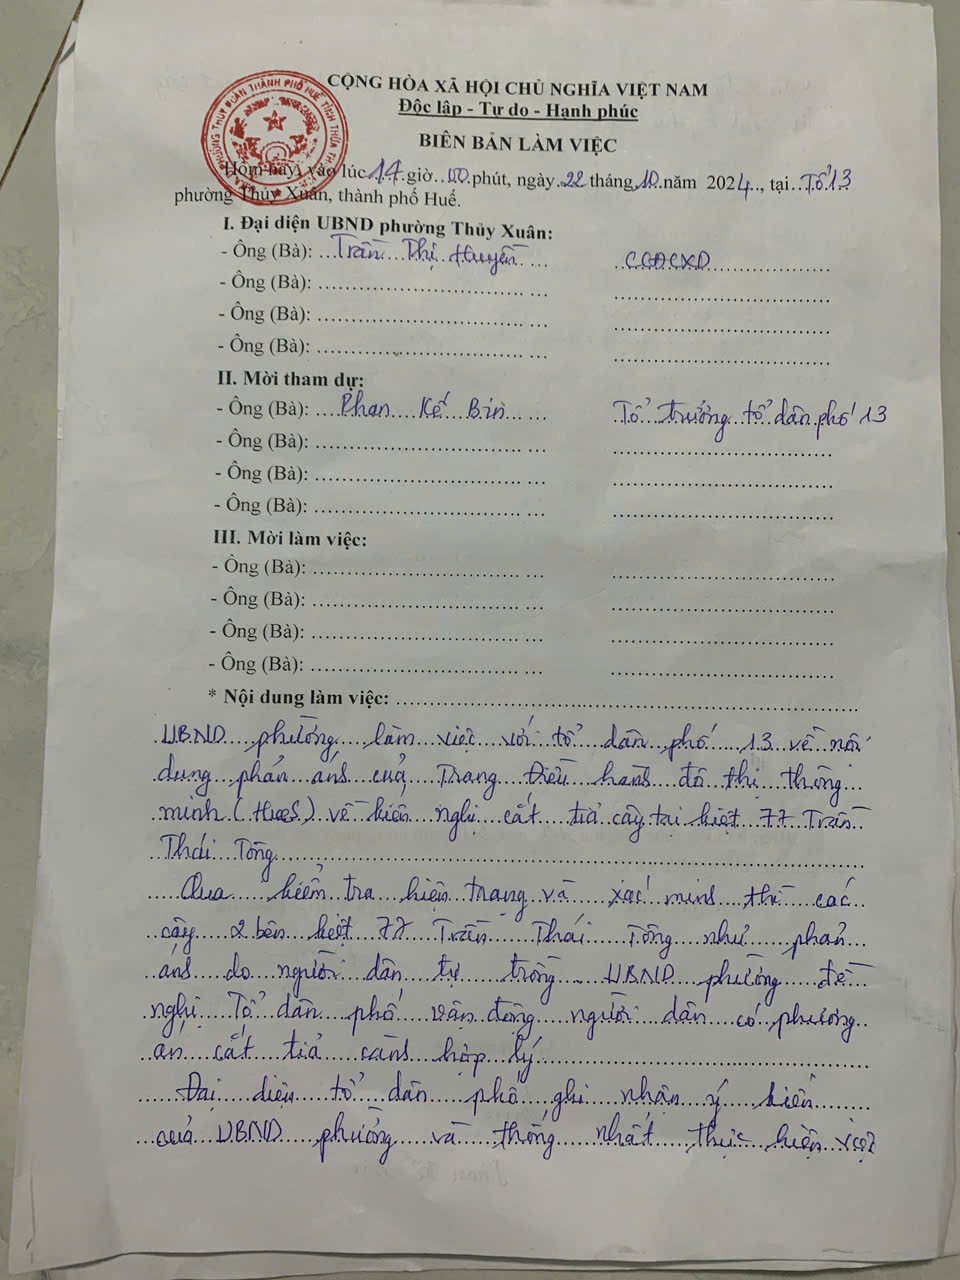 CỘNG HÒA XÃ HỘI CHỦ NGHĨA VIỆT NAM
Độc lập - Tự do - Hạnh phúc
BIÊN BẢN LÀM VIỆC
PHƯỜNG THỦY XUÂN THÀNH PHỐ HUẾ TỈNH THỪA
Hôm nay, vào lúc 14 giờ 00 phút, ngày 22 tháng 10 năm 2024.., tại Tổ 13
phường Thủy Xuân, thành phố Huế.
I. Đại diện UBND phường Thủy Xuân:
- Ông (Bà): Trần Thị Huyền CCĐCXD
- Ông (Bà):
- Ông (Bà):
- Ông (Bà):
II. Mời tham dự:
- Ông (Bà): Phan Kế Bin Tổ trưởng tổ dân phố 13
- Ông (Bà):
- Ông (Bà):
- Ông (Bà):
III. Mời làm việc:
- Ông (Bà):
- Ông (Bà):
- Ông (Bà):
- Ông (Bà):
* Nội dung làm việc:
UBND phường làm việc với tổ dân phố 13 về nội
dung phản ánh của Trang Điều hành đô thị thông
minh (HueS) về kiến nghị cắt tỉa cây tại kiệt 77 Trần
Thái Tông
Qua kiểm tra hiện trạng và xác minh thì các
cây 2 bên kiệt 77 Trần Thái Tông như phản
ánh do người dân tự trồng UBND phường đề
nghị Tổ dân phố vận động người dân có phương
án cắt tỉa cành hợp lý
Đại diện tổ dân phố ghi nhận ý kiến
của UBND phường và thống nhất thực hiện việc